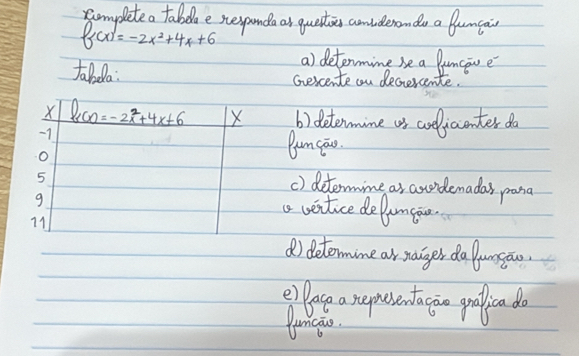 complete a tabela e responda as questões considerando a função
f(x) = -2x²+4x+6
tabela:
x | f(x) = -2x²+4x+6 | X
-1
0
5
9
11
a) determine se a função é
crescente ou decrescente.
b) determine os coeficientes da
função.
c) determine as coordenadas para
o vértice de função.
d) determine as raízes da função.
e) faça a representação gráfica da
função.